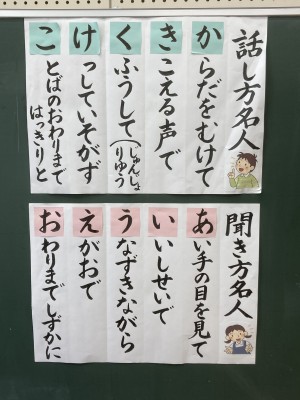 話し方名人
からだをむけて
きこえる声で
くふうして(じゅんじょ
りゆう
けっしていそがず
ことばのおわりまで
はっきりと
聞き方名人
あい手の目を見て
いいしせいで
うなずきながら
えがおで
おわりまでしずかに